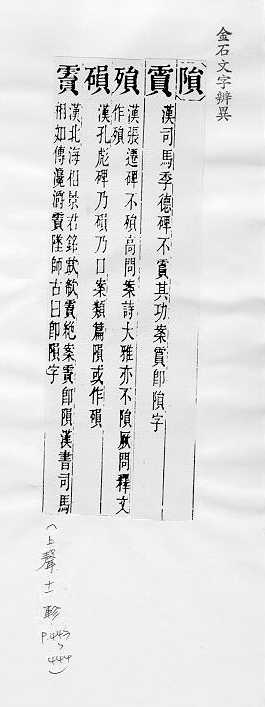 金石文字辨異
〔隕〕
霣 漢司馬季德碑不霣其功案霣即隕字
殞 漢張遷碑不殞高問案詩大雅亦不隕厥問釋文
作殞
磒 漢孔彪碑乃磒乃囗案類篇隕或作磒
霣 漢北海相景君銘歔欷霣絕案霣即隕漢書司馬
相如傳瀺灂霣墜師古曰即隕字
(上聲十一軫
p.443
~
444)